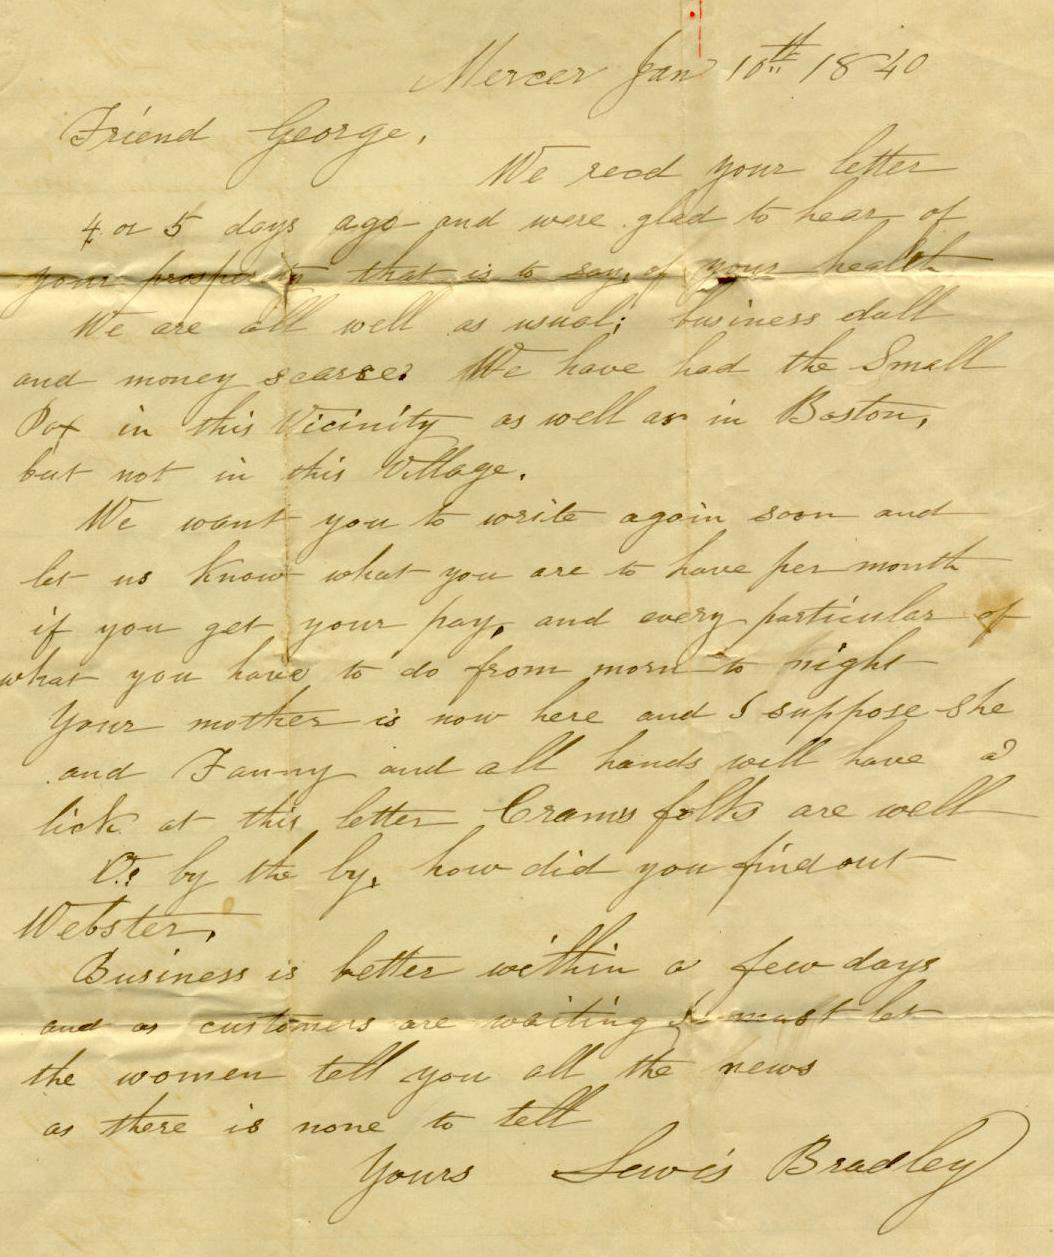 Mercer Jan 10th 1840
Friend George,
We read your letter
4 or 5 days ago and were glad to hear of
your prosperity that is to say, of your health
We are all well as usual; business dull
and money scarse. We have had the Small
Pox in this Vicinity as well as in Boston,
but not in this Village.
We want you to write again soon and
let us know what you are to have per month
if you get your pay, and every particular of
what you have to do from morn to night
Your mother is now here and I suppose she
and Fanny and all hands will have a
lick at this letter Crams folks are well
O. by the by, how did you find out
Webster.
Business is better within a few days
and as customers are waiting I must let
the women tell you all the news
as there is none to tell
Yours Lewis Bradley